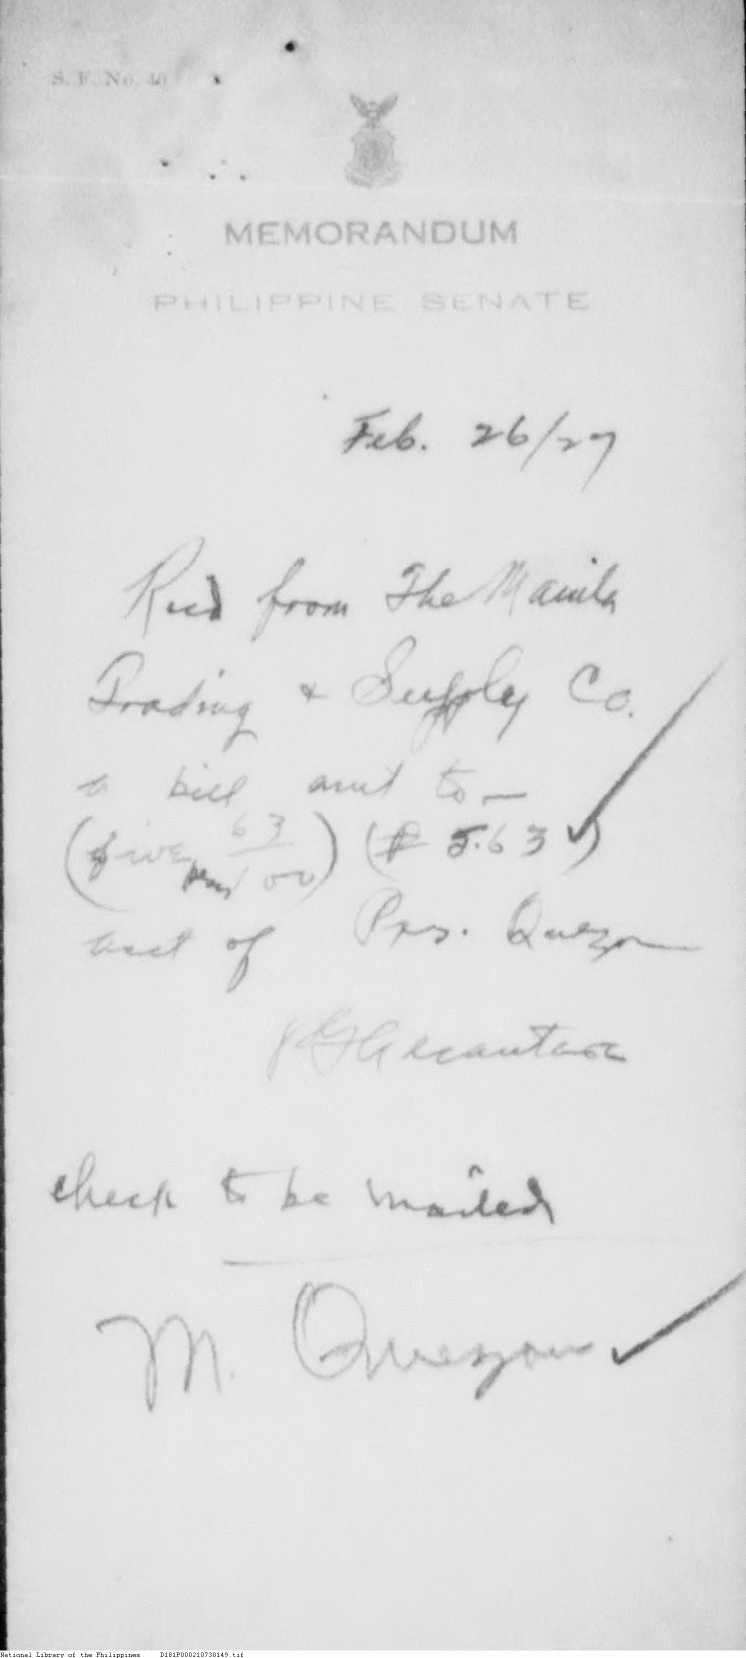 S. F. No. 40
MEMORANDUM
PHILIPPINE SENATE
Feb. 26/27
Recd from The Manila
Trading & Supply Co.
a bill amt to —
(five 63/100) (₱ 5.63)
acct of Pres. Quezon
Alcantara
check to be mailed
M. Quezon
National Library of the Philippines D181P000210730149.tif